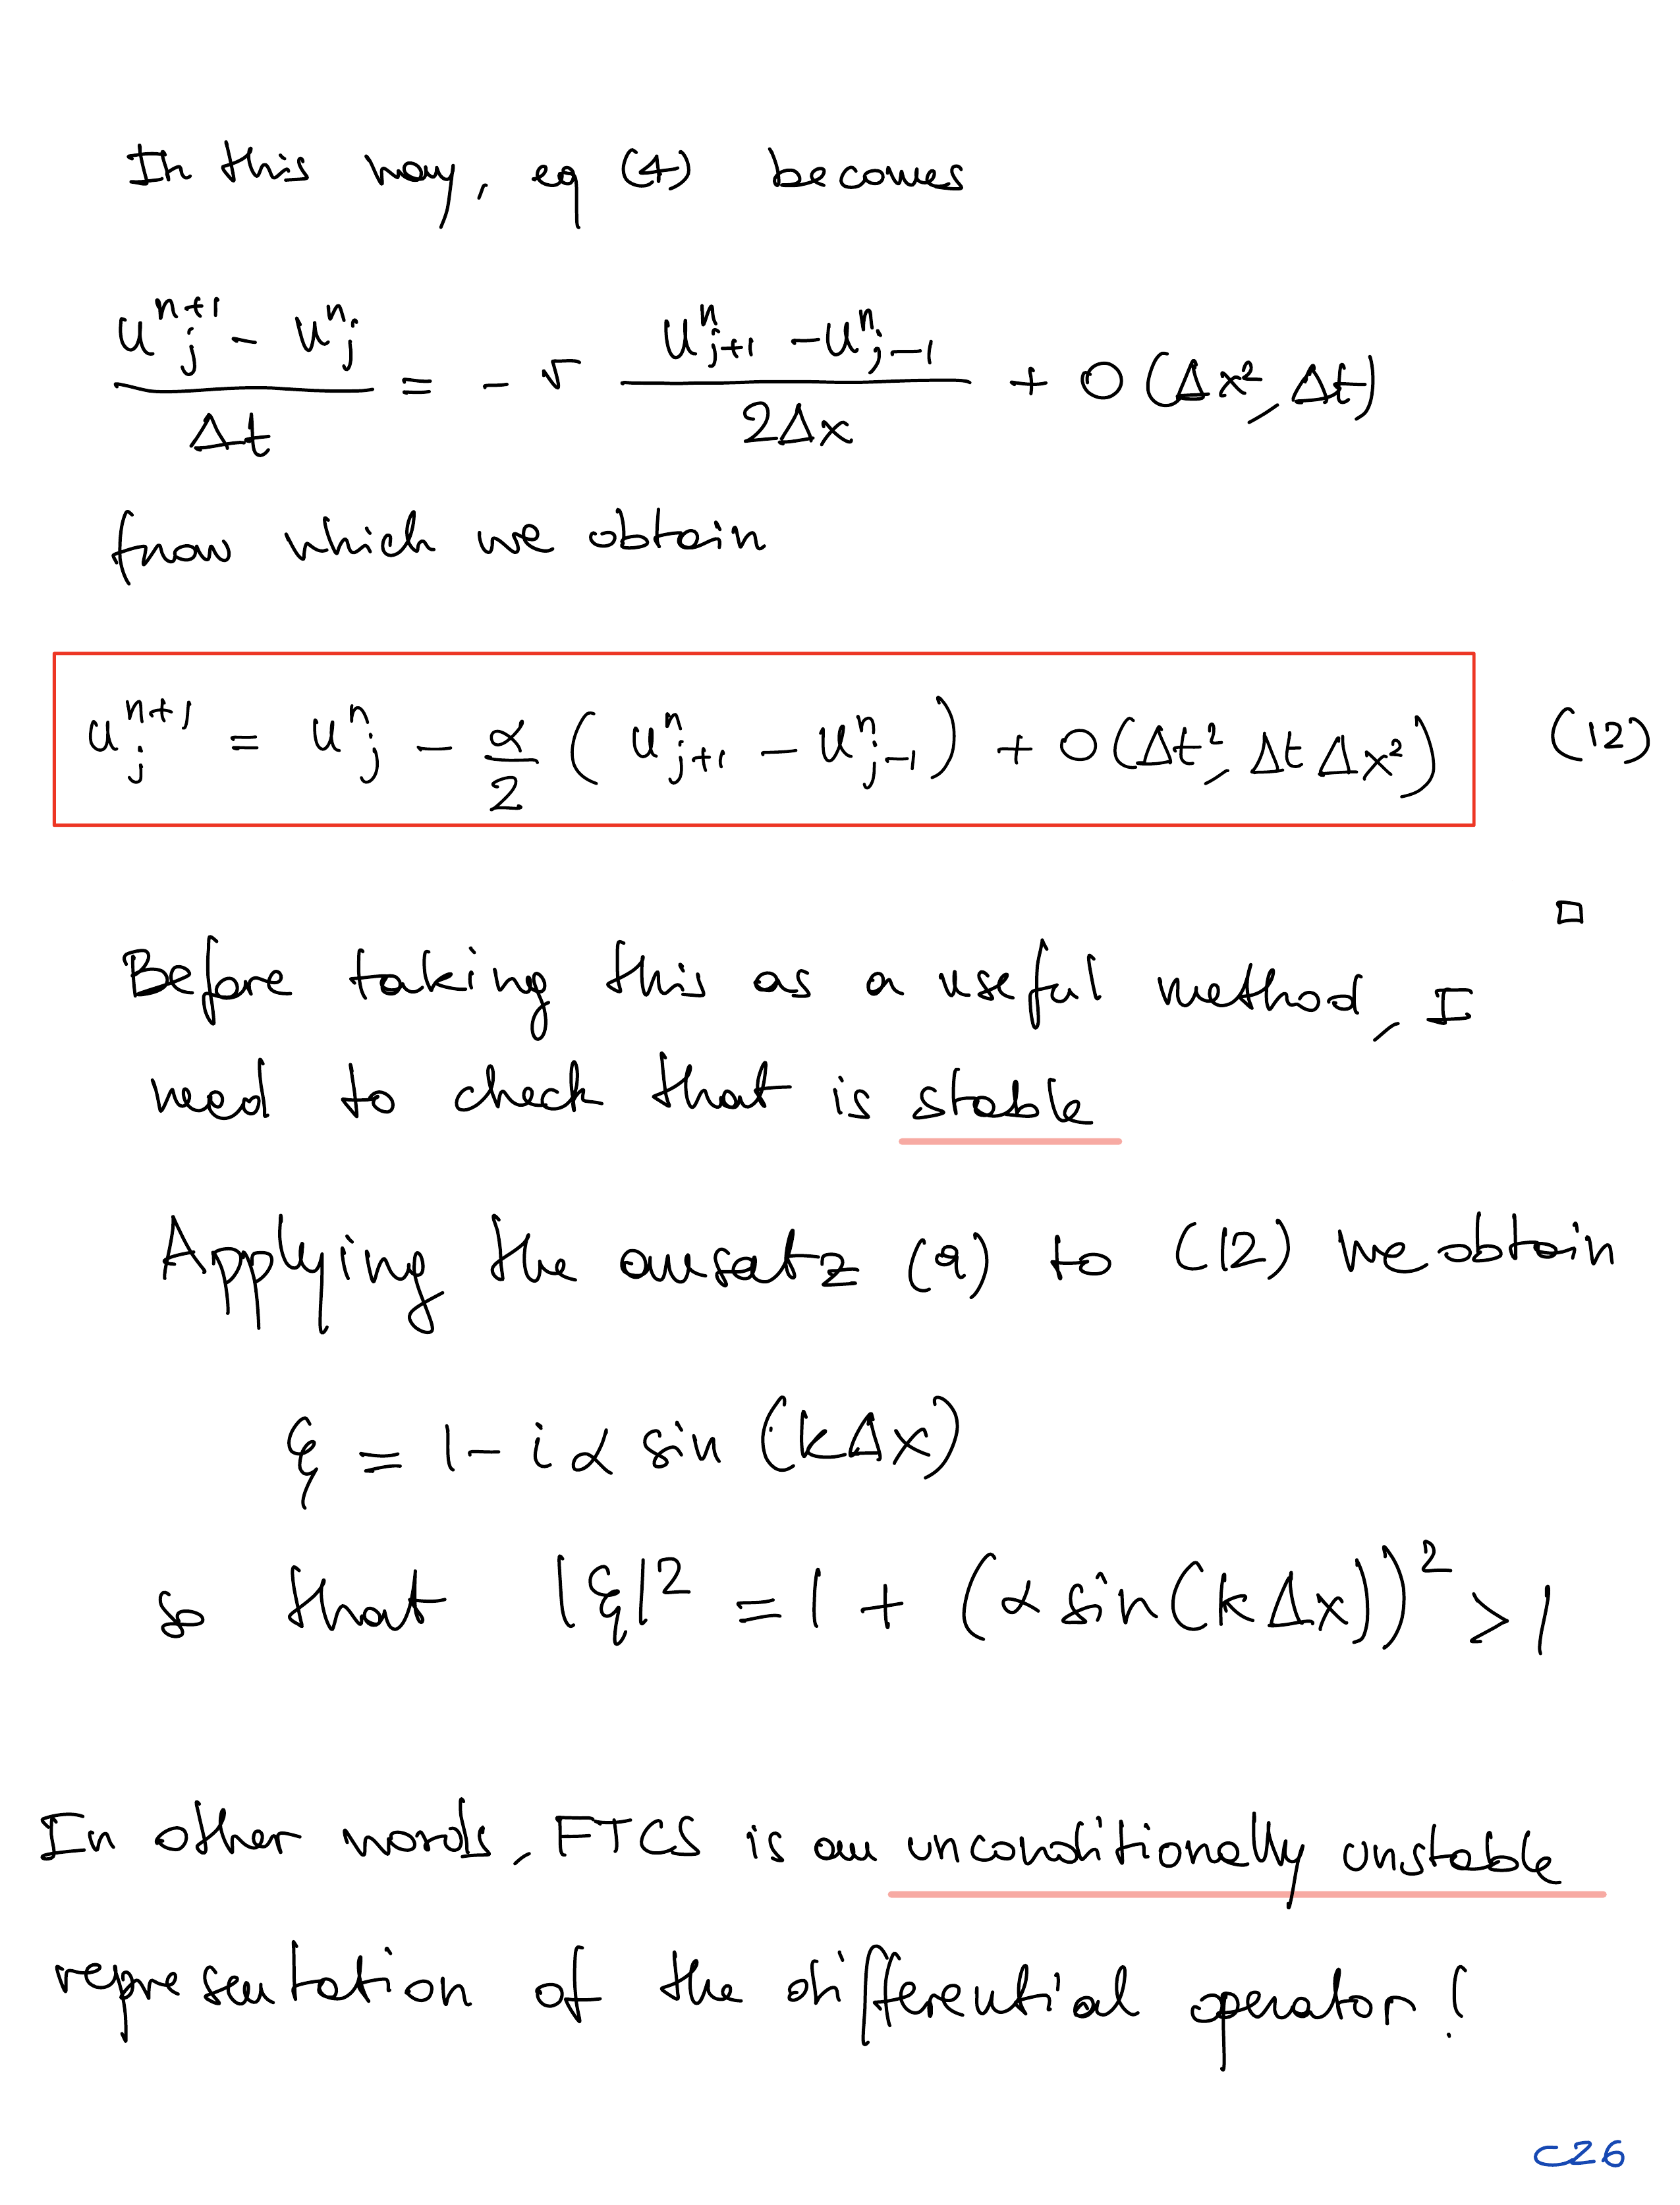 In this way, eq (4) becomes
(u^{n+1}_j - u^n_j) / Δt = - v (u^n_{j+1} - u^n_{j-1}) / 2Δx + O(Δx², Δt)
from which we obtain
u^{n+1}_j = u^n_j - α/2 (u^n_{j+1} - u^n_{j-1}) + O(Δt², Δt Δx²) (12)
□
Before taking this as a useful method, I
need to check that is stable
Applying the ansatz (9) to (12) we obtain
ξ = 1 - i α sin (kΔx)
so that |ξ|² = 1 + (α sin(kΔx))² > 1
In other words, FTCS is an unconditionally unstable
representation of the differential operator!
C26